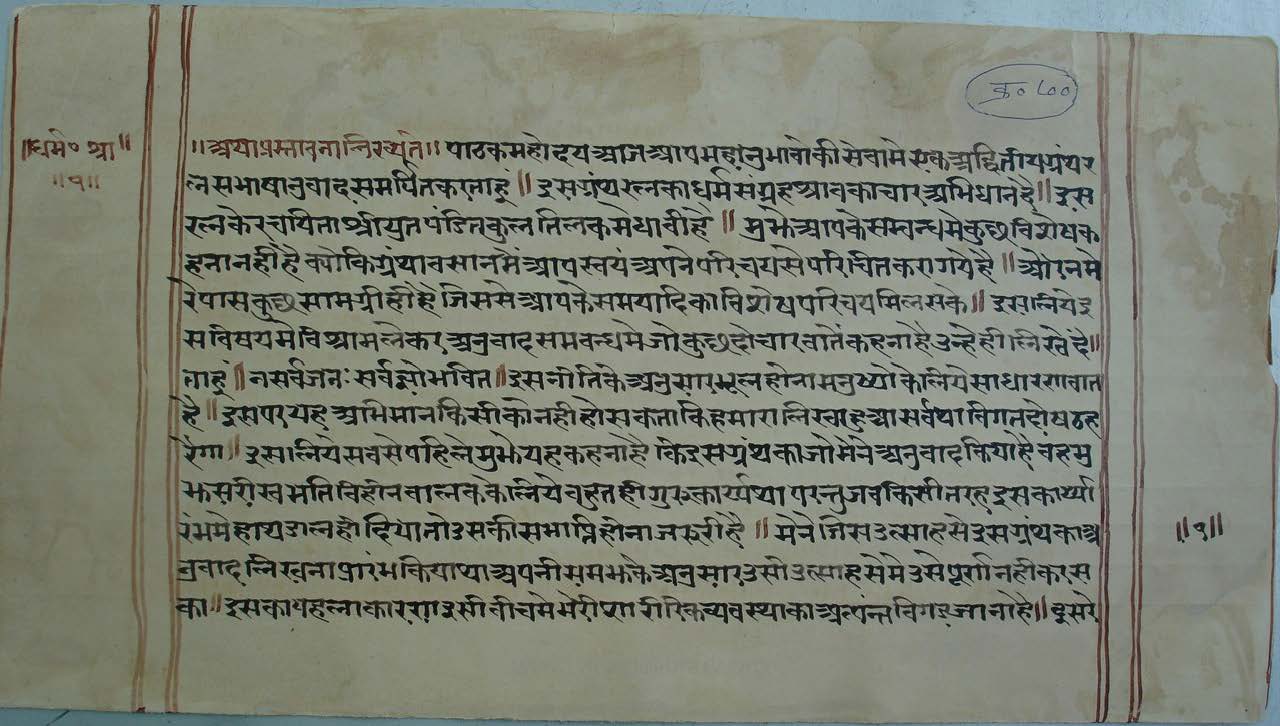 क्र० ८००
॥धर्म० श्रा॥
॥१॥
॥अथ प्रस्तावना लिख्यते॥ पाठकमहोदय आज आप महानुभावो की सेवामे एक अद्वितीय ग्रंथर
त्न सभाषानुवाद समर्पित करताहूं॥ इस ग्रंथरत्न का धर्मसंग्रह श्रावकाचार अभिधान है॥ इस
रत्न के रचयिता श्रीयुत पंडित कुलतिलक मेधावी है॥ मुझे आपके सम्बन्धमे कुछ विशेष क
हना नहीं है क्योकि ग्रंथावसानमें आप स्वयं अपने परिचयसे परिचित करा गये है॥ और न मे
रे पास कुछ सामग्री ही है जिससे आपके समयादि का विशेष परिचय मिल सके॥ इसलिये इ
स विषयमे विश्राम लेकर अनुवाद समबन्धमे जो कुछ दो चार बातें कहना है उन्हे ही लिखे दे॥
ताहूं॥ न सर्वजनः सर्वज्ञो भवति॥ इस नीतिके अनुसार भूल होना मनुष्यो के लिये साधारण बात
है॥ इसपर यह अभिमान किसी को नही हो सकता कि हमारा लिखा हुआ सर्वथा विगत दोष ठह
रेगा॥ इसलिये सबसे पहिले मुझे यह कहना है कि इस ग्रंथ का जो मेने अनुवाद किया है वंह मु
झ सरीख मतिविहीन बालकके लिये बहुत ही गुरु कार्य्य था परन्तु जब किसी तरह इस कार्य्या
रंभमे हाथ डाल ही दिया तो उसकी समाप्ति होना जरूरी है॥ मेने जिस उत्साहसे इस ग्रंथ का अ
नुवाद लिखना प्रारंभ किया था अपनी समझके अनुसार उसी उत्साहसे मे उसे पूर्ण नही कर स
का॥ इस का पहला कारण इसी बीचमे मेरी शारीरिक व्यवस्था का अत्यंन्त बिगड जाना है॥ दूसरे
॥१॥